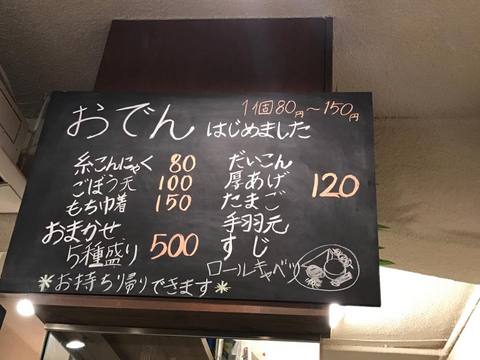 おでん はじめました
1個80円～150円
糸こんにゃく 80
ごぼう天 100
もち巾着 150
おまかせ
5種盛り 500
だいこん
厚あげ
たまご 120
手羽元
すじ
ロールキャベツ
＊お持ち帰りできます＊